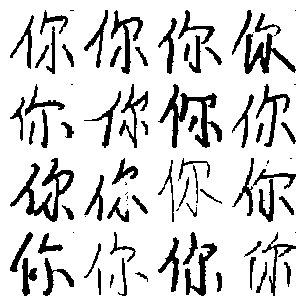 你你你你
你你你你
你你你你
你你你你